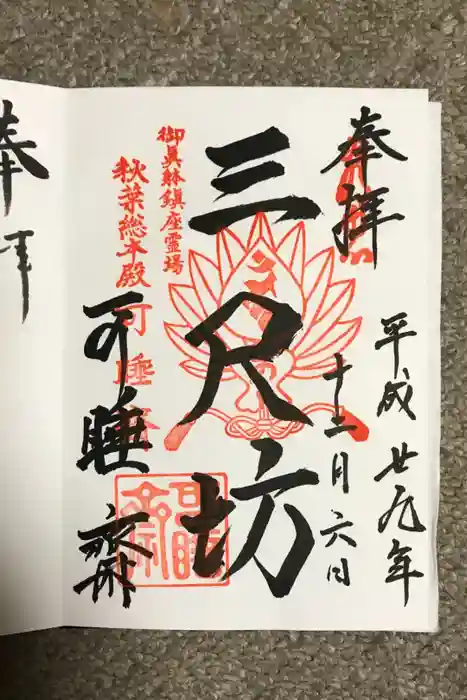 奉拝
平成廿九年
十二月六日
三尺坊
御眞躰鎮座霊場
秋葉総本殿可睡斎
可睡齋
奉拝